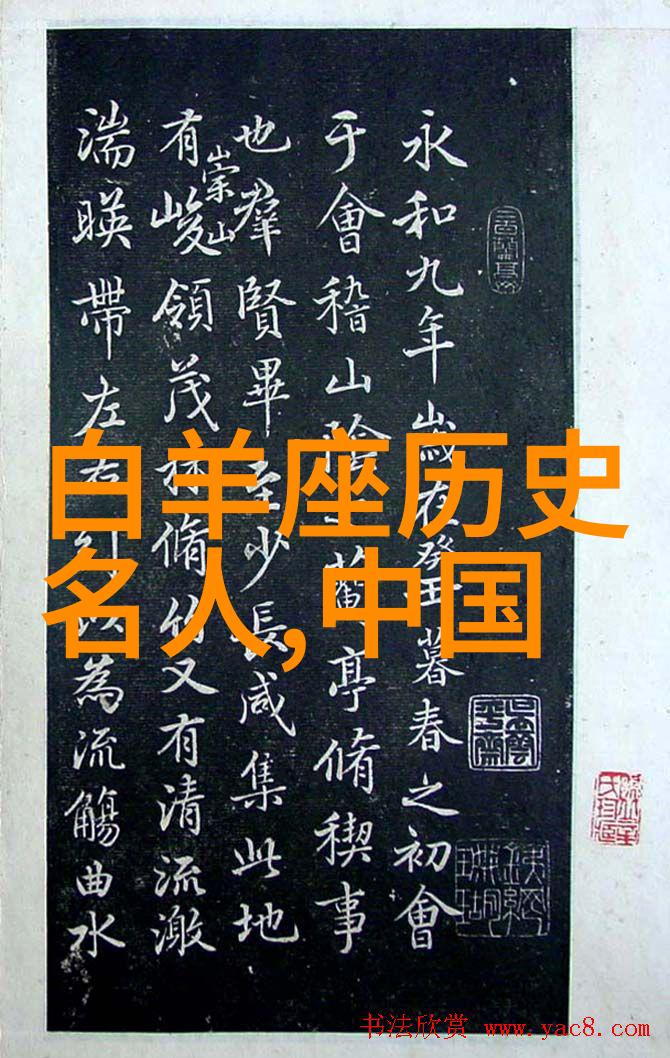 永和九年歲在癸丑暮春之初會
于會稽山陰之蘭亭脩稧事
也羣賢畢至少長咸集此地
有崇山峻領茂林脩竹又有清流激
湍暎帶左右引以為流觴曲水
白羊座历史
名人,中国
书法欣赏 www.yac8.com